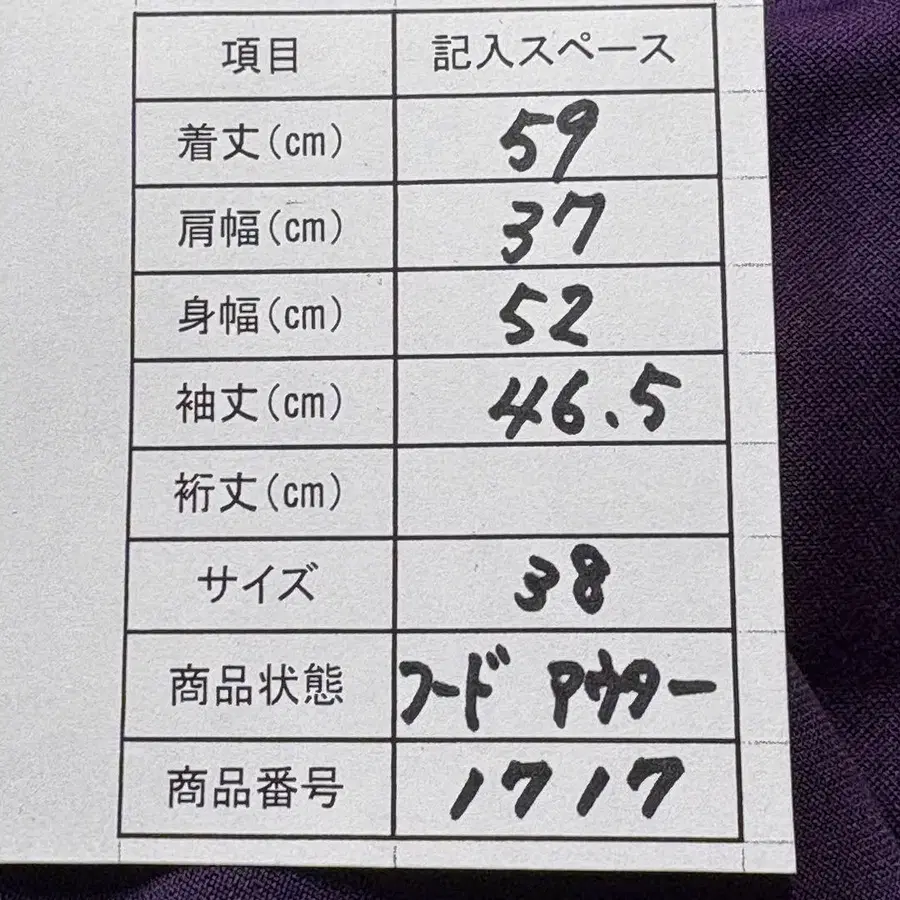 項目 記入スペース
着丈(cm) 59
肩幅(cm) 37
身幅(cm) 52
袖丈(cm) 46.5
裄丈(cm)
サイズ 38
商品状態 フード アウター
商品番号 1717